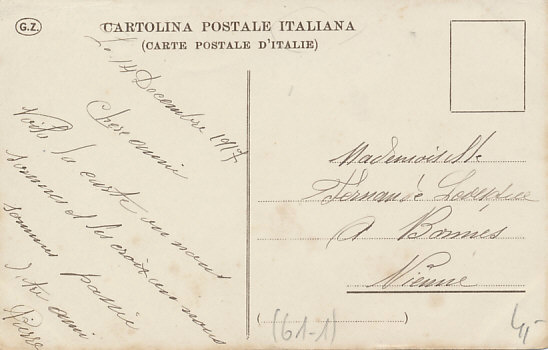 G.Z.
CARTOLINA POSTALE ITALIANA
(CARTE POSTALE D'ITALIE)
Le 14 Decembre 1917
Chere amie
Voici la carte ou nous
sommes et les croix ou nous
sommes passé
ami
Pierre
Mademoiselle
Fernande
A Bonnes
Vienne
(61-1)